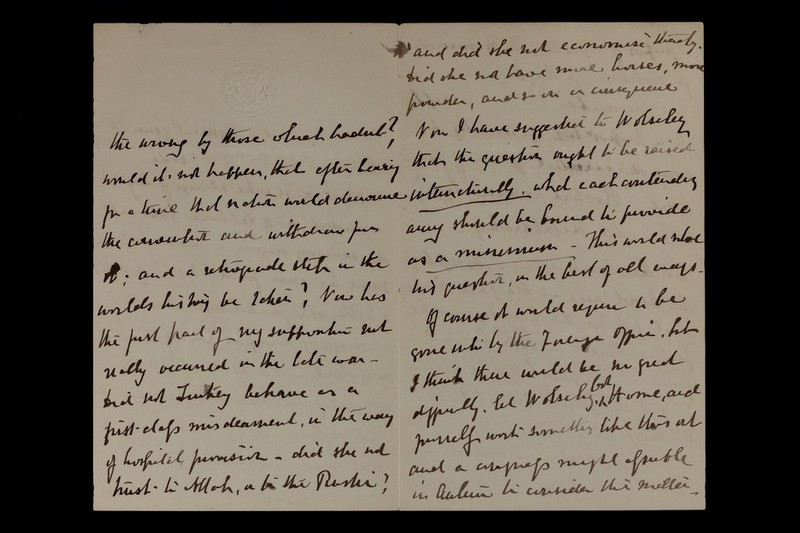 the wrong by those which hadn't?
would it not happen, that after hearing
for a time that nation would denounce
the convention and withdraw from
it; and a retrograde step in the
worlds history be taken? Now has
the first part of my supposition not
really occurred in the late war -
Did not Turkey behave as a
first-class misdemeanant, in the way
of hospital provision - did she not
trust to Allah, or to the Russian?
and did she not economise thereby.
Did she not have more horses, more
powder, and so on in consequence
Now I have suggested to Wolseley
that the question ought to be raised
internationally. what each contending
army should be bound to provide
as a minimum - This would solve
this question, in the best of all ways -
Of course it would require to be
gone into by the Foreign Office, but
I think there would be no great
difficulty. Let Wolseley, Home, and
yourself work something like this out
and a congress might assemble
in to consider the matter -